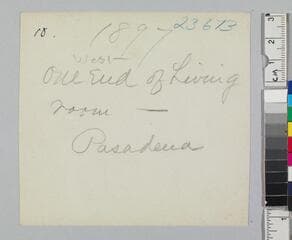 10. 1897 23673
West
One End of Living
room —
Pasadena